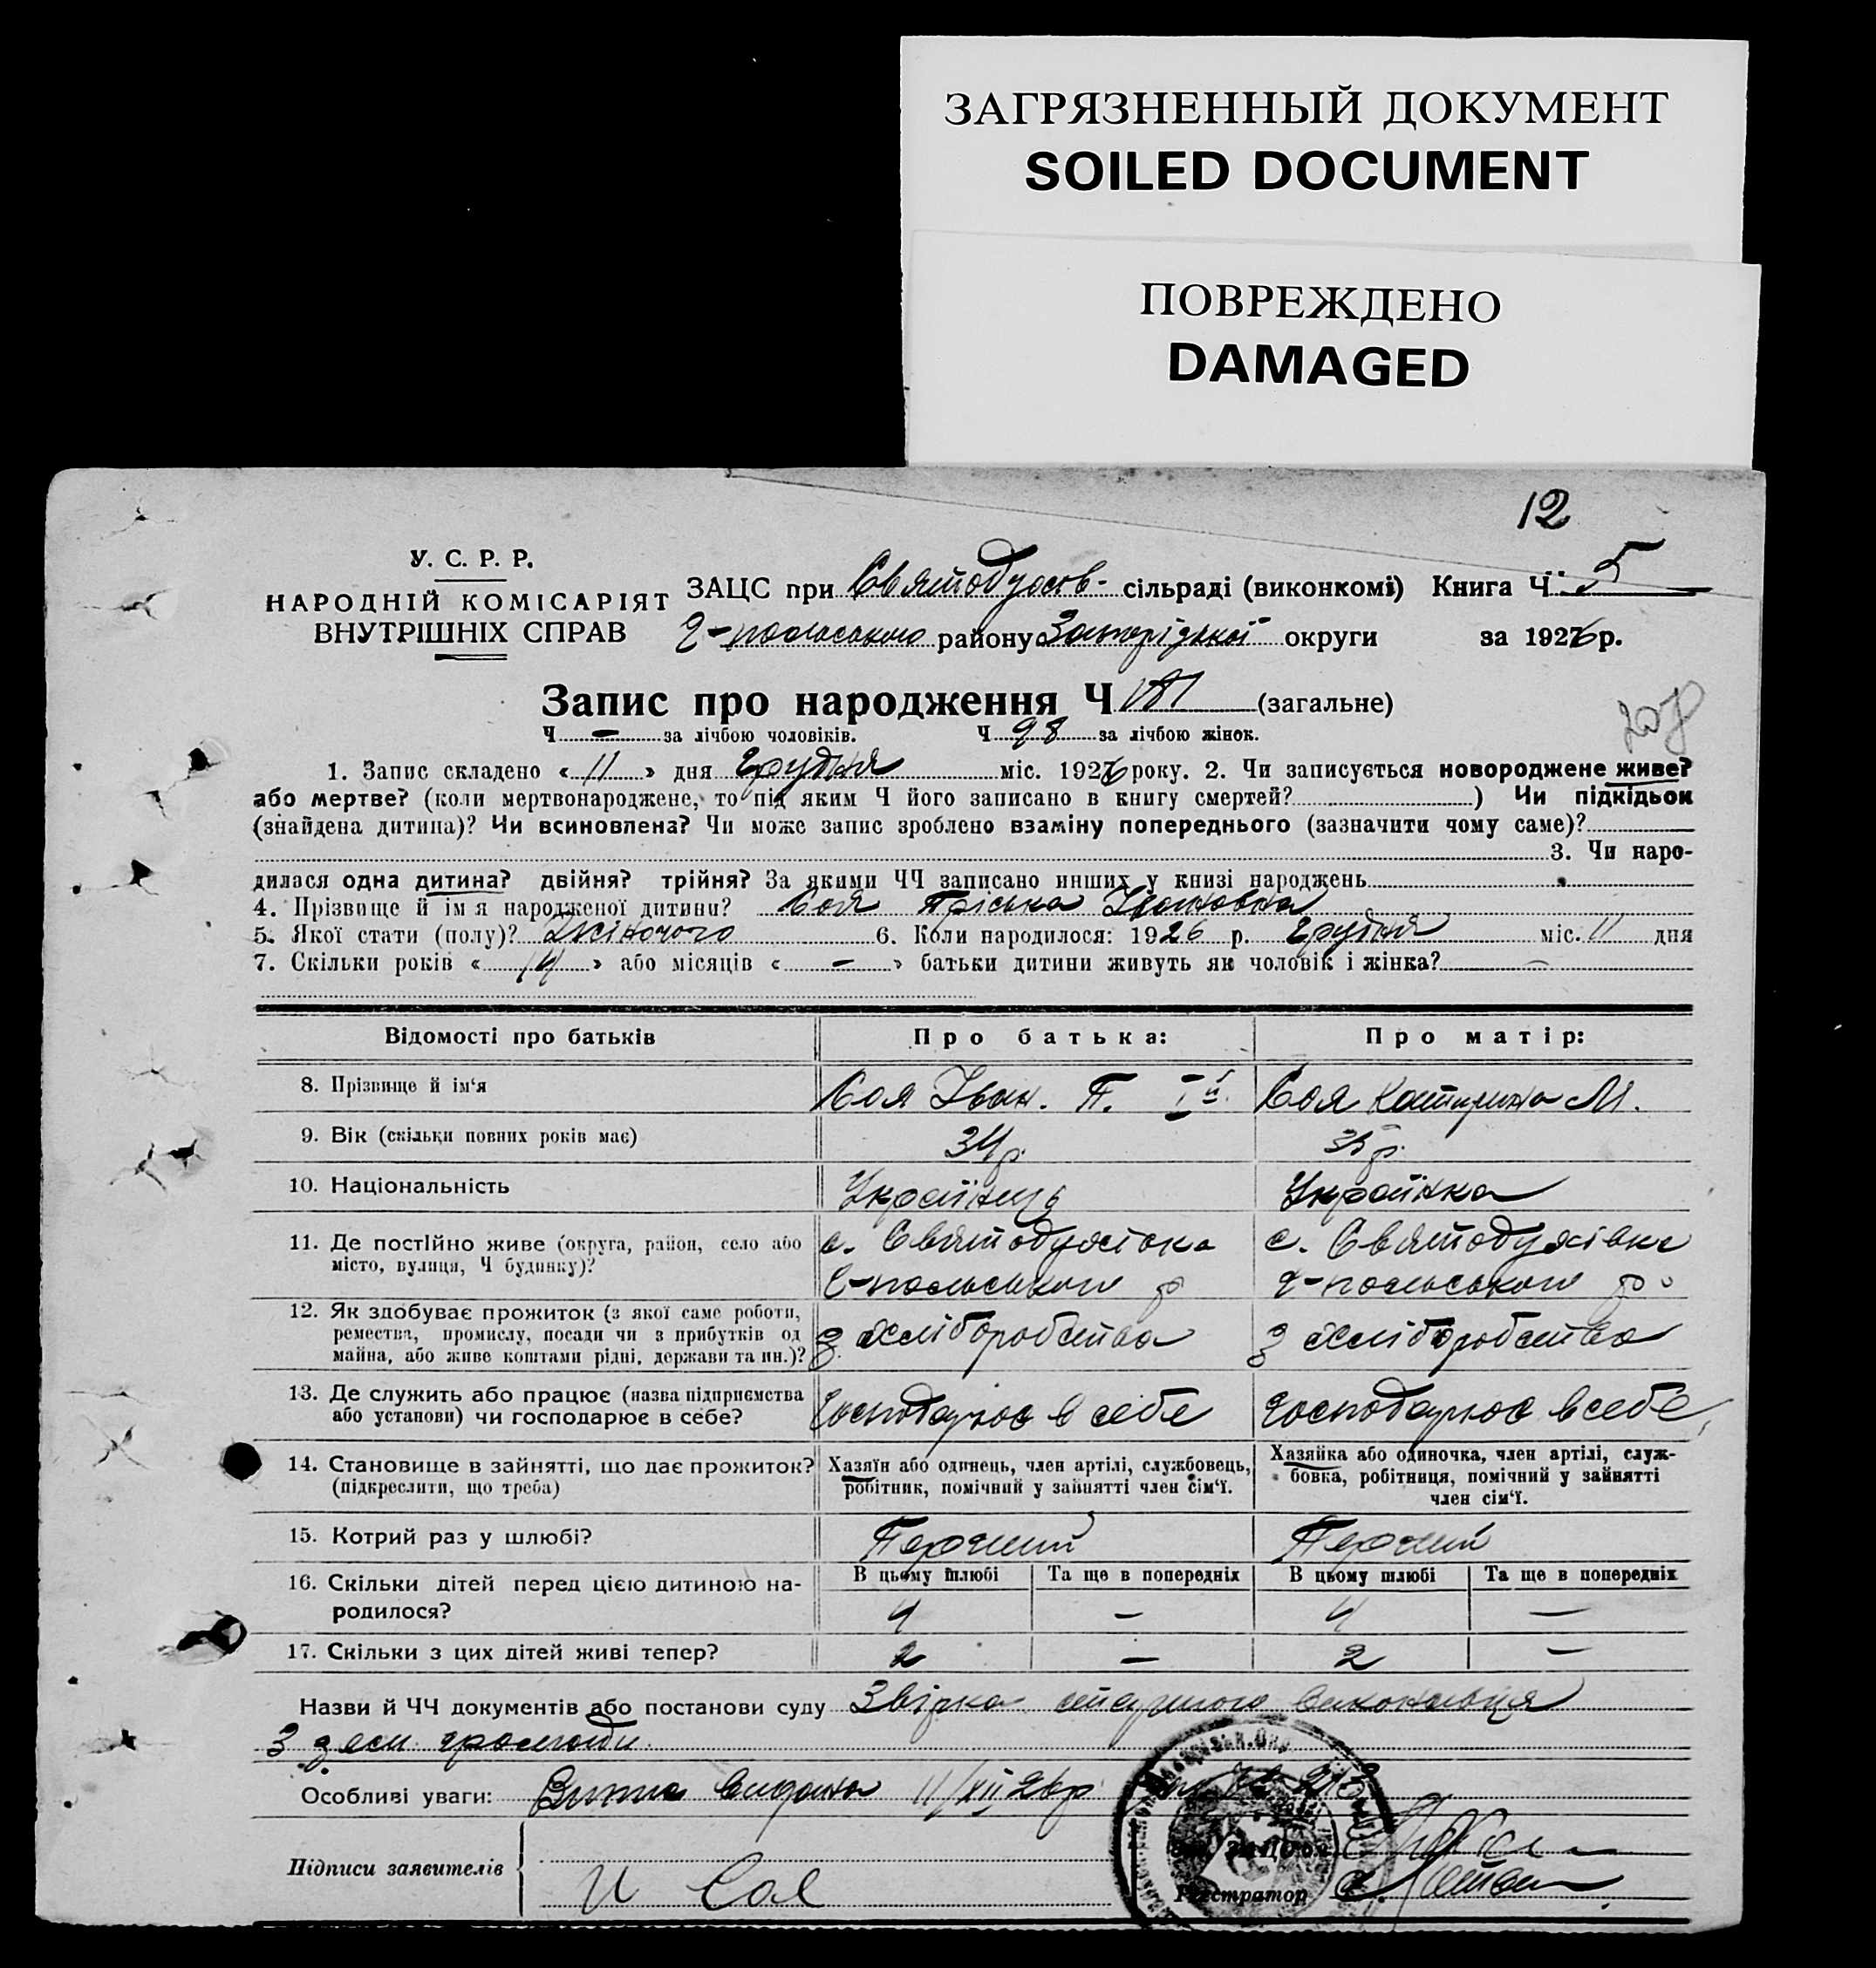 ЗАГРЯЗНЕННЫЙ ДОКУМЕНТ
SOILED DOCUMENT
ПОВРЕЖДЕНО
DAMAGED
12
У. С. Р. Р.
НАРОДНІЙ КОМІСАРІЯТ
ВНУТРІШНІХ СПРАВ
ЗАЦС при Святодухов- сільраді (виконкомі) Книга Ч. 5
Г-польського району Запорізької округи за 1926 р.
Запис про народження Ч 181 (загальне)
Ч — за лічбою чоловіків. Ч 98 за лічбою жінок.
1. Запис складено « 11 » дня Грудня міс. 1926 року. 2. Чи записується новороджене живе?
або мертве? (коли мертвонароджене, то під яким Ч його записано в книгу смертей? ) Чи підкідьок
(знайдена дитина)? Чи всиновлена? Чи може запис зроблено взаміну попереднього (зазначити чому саме)?
3. Чи наро-
дилася одна дитина? двійня? трійня? За якими ЧЧ записано инших у книзі народжень
4. Прізвище й ім'я народженої дитини? Соя Пріська Івановна
5. Якої стати (полу)? Жіночого 6. Коли народилося: 1926 р. Грудня міс. 11 дня
7. Скільки років « 14 » або місяців « — » батьки дитини живуть як чоловік і жінка? —
Відомості про батьків Про батька: Про матір:
8. Прізвище й ім'я Соя Іван. П. Соя Катирина М.
9. Вік (скільки повних років має) 34 р. 35 р.
10. Національність Українець Українка
11. Де постійно живе (округа, район, село або с. Святодухівка с. Святодухівка
місто, вулиця, Ч будинку)? Г-польського р Г-польського р
12. Як здобуває прожиток (з якої саме роботи,
ремества, промислу, посади чи з прибутків од З хліборобства З хліборобства
майна, або живе коштами рідні, держави та ин.)?
13. Де служить або працює (назва підприємства
або установи) чи господарює в себе? Господарює в себе Господарює в себе
14. Становище в зайнятті, що дає прожиток? Хазяїн або одинець, член артілі, службовець, Хазяйка або одиночка, член артілі, служ-
(підкреслити, що треба) робітник, помічний у зайнятті член сім'ї. бовка, робітниця, помічний у зайнятті
член сім'ї.
15. Котрий раз у шлюбі? Перший Перший
16. Скільки дітей перед цією дитиною на- В цьому шлюбі Та ще в попередніх В цьому шлюбі Та ще в попередніх
родилося? 4 — 4 —
17. Скільки з цих дітей живі тепер? 2 — 2 —
Назви й ЧЧ документів або постанови суду Звірка виконавця
З громади
Особливі уваги: видана 11/XII 26 р
Підписи заявителів И Соя
Реєстратор